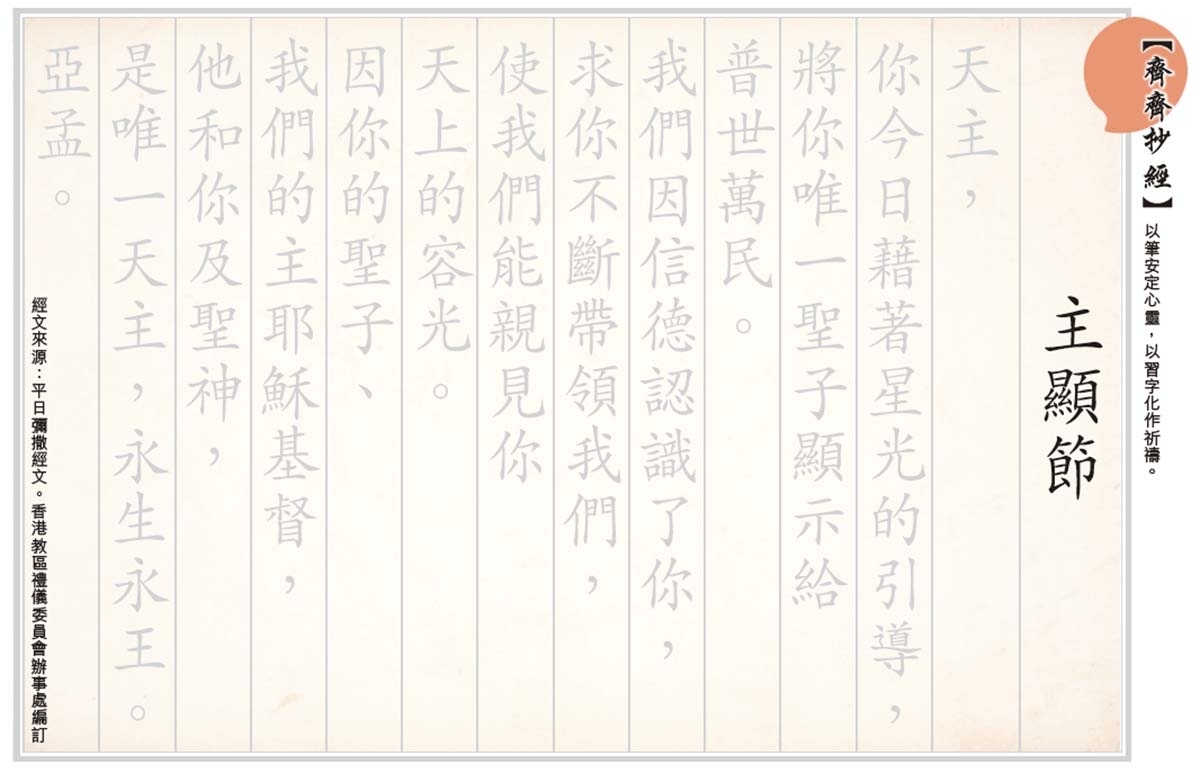 【齊齊抄經】
以筆安定心靈，以習字化作祈禱。
主顯節
天主，
你今日藉著星光的引導，
將你唯一聖子顯示給
普世萬民。
我們因信德認識了你，
求你不斷帶領我們，
使我們能親見你
天上的容光。
因你的聖子、
我們的主耶穌基督，
他和你及聖神，
是唯一天主，永生永王。
亞孟。
經文來源：平日彌撒經文。香港教區禮儀委員會辦事處編訂